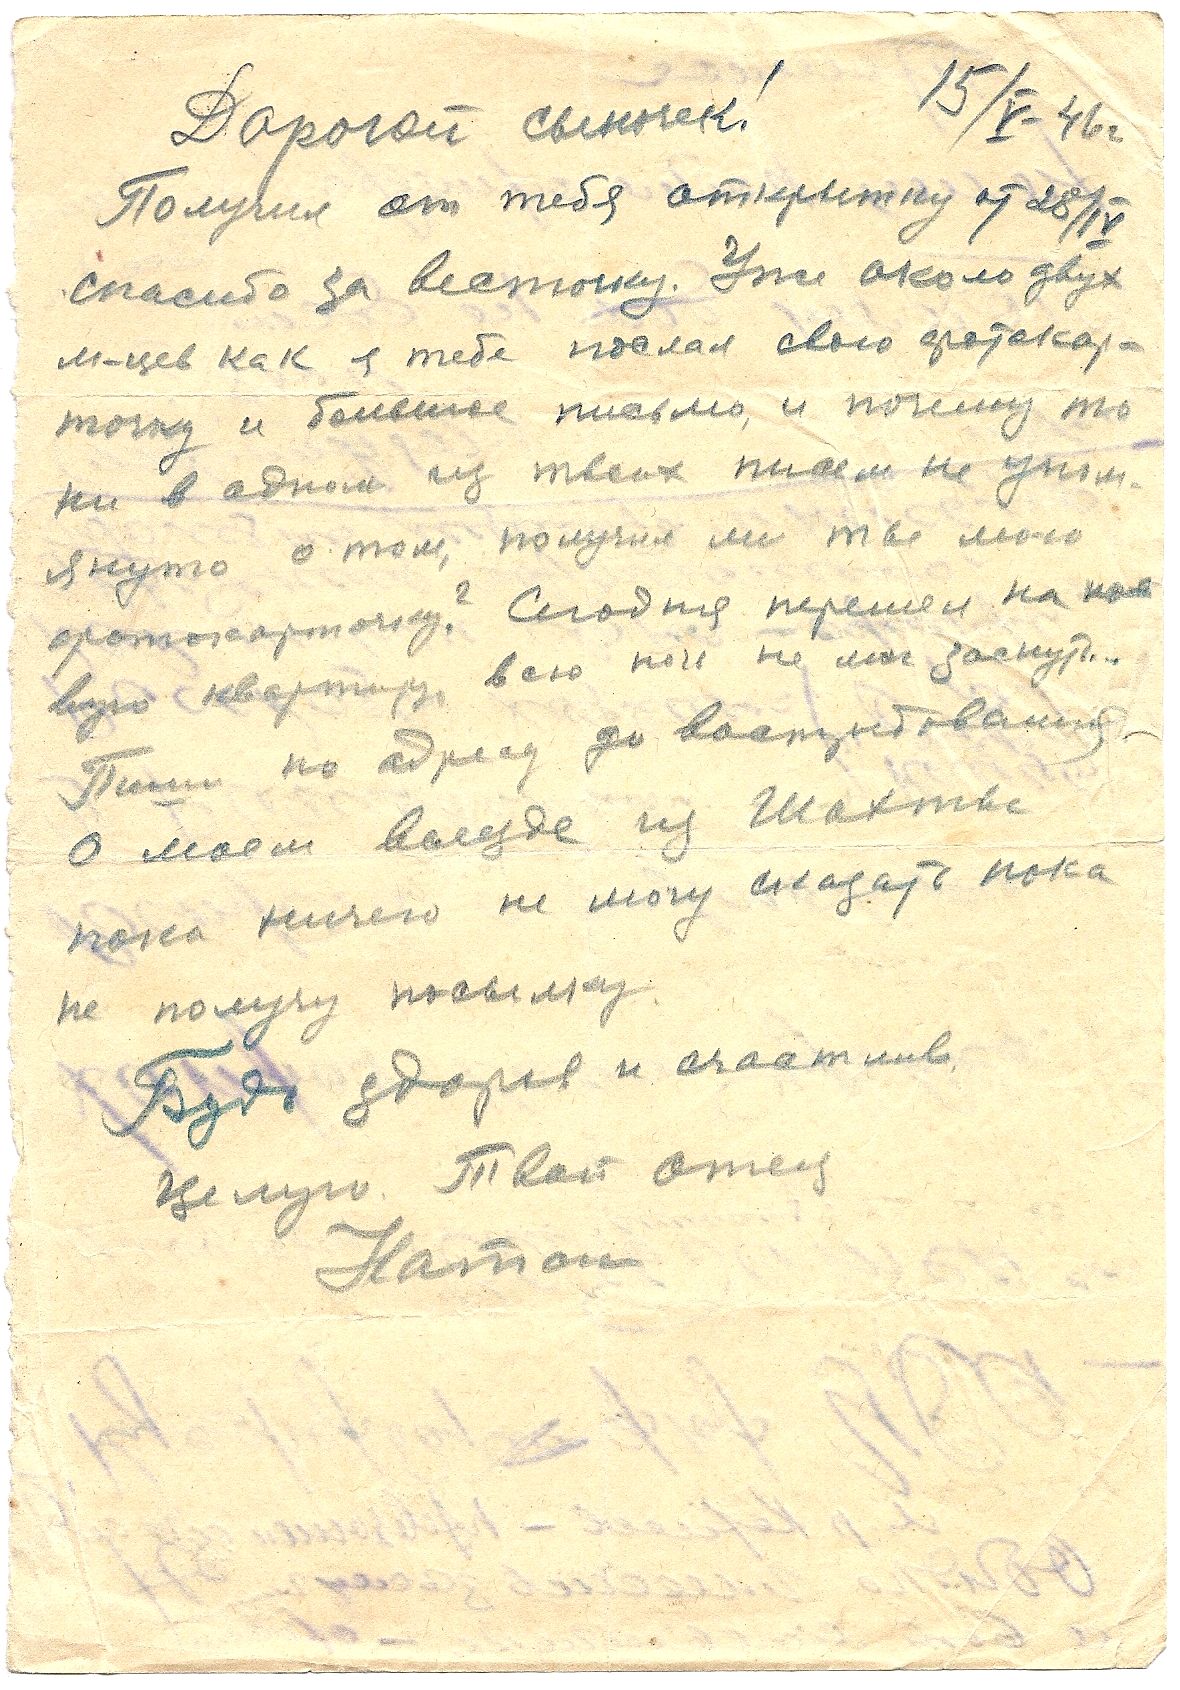 15/V-46г
Дорогой сыночек!
Получил от тебя открытку от 28/IV
спасибо за весточку. Уже около двух
м-цев как я тебе послал свою фотокар-
точку и большое письмо, и почему то
ни в одном из твоих писем не упом-
януто о том, получил ли ты мою
фотокарточку? Сегодня перешел на но-
вую квартиру, всю ночь не мог заснуть..
Пиши по адресу до востребования.
О моем выезде из Шахты
пока ничего не могу сказать пока
не получу посылку.
Будь здоров и счастлив.
Целую. Твой отец
Натан